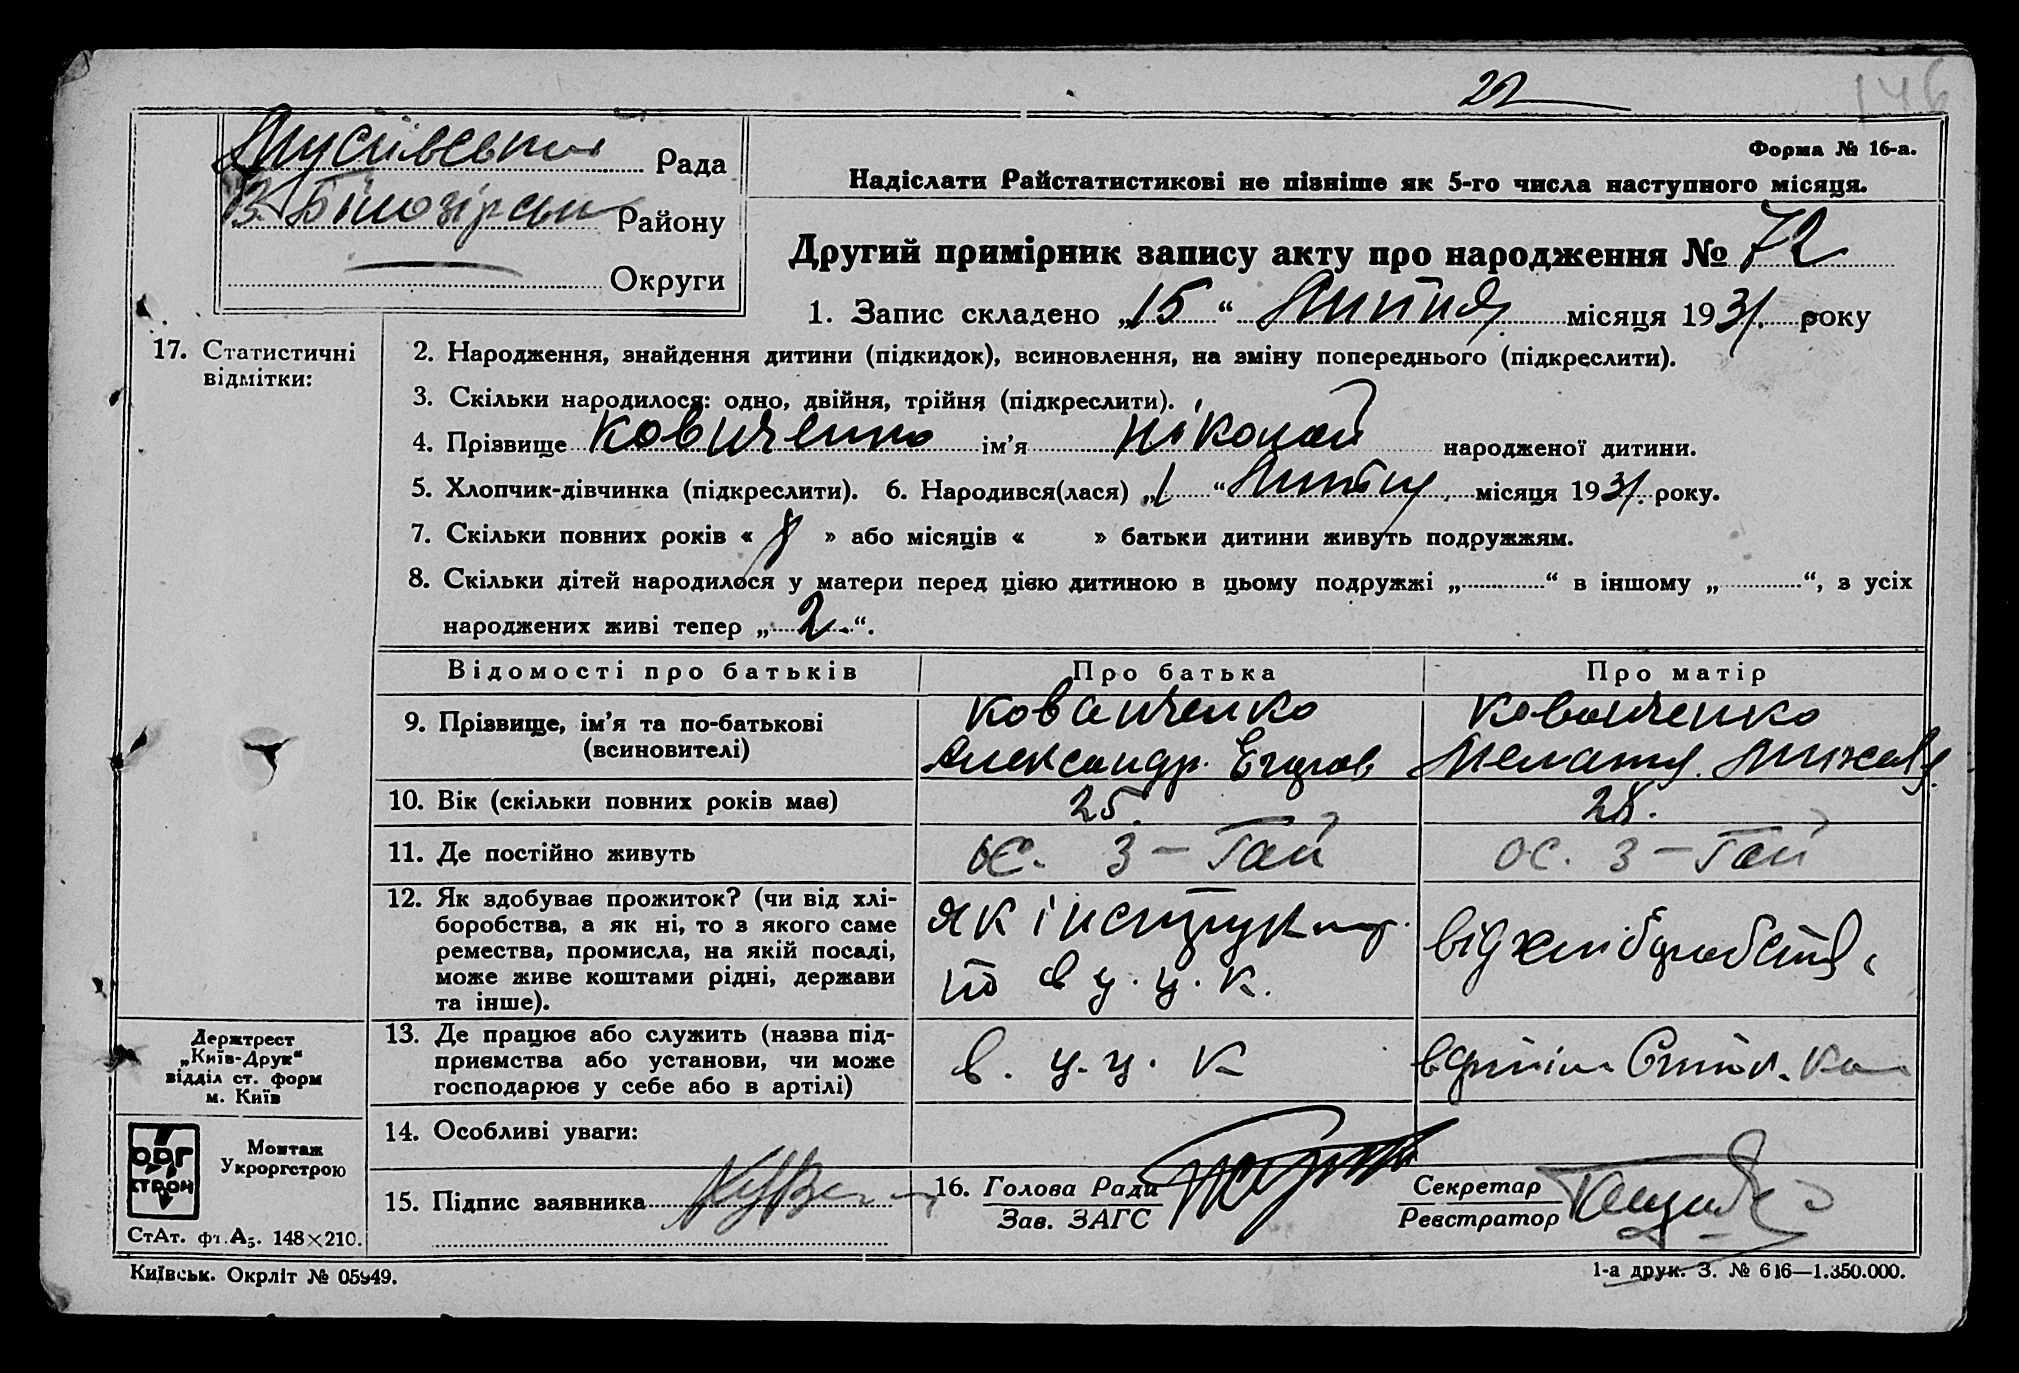 22
146
Мусіївська Рада
В. Білозірськ Району
Округи
Форма № 16-а.
Надіслати Райстатистикові не пізніше як 5-го числа наступного місяця.
Другий примірник запису акту про народження № 72
1. Запис складено „15“ Липня місяця 1931. року
17. Статистичні відмітки:
2. Народження, знайдення дитини (підкидок), всиновлення, на зміну попереднього (підкреслити).
3. Скільки народилося: одно, двійня, трійня (підкреслити).
4. Прізвище ім’я Ніколай народженої дитини.
5. Хлопчик-дівчинка (підкреслити). 6. Народився(лася) „1“ Липня місяця 1931. року.
7. Скільки повних років « 8 » або місяців « » батьки дитини живуть подружжям.
8. Скільки дітей народилося у матери перед цією дитиною в цьому подружжі „ “ в іншому „ “, з усіх
народжених живі тепер „ 2. “.
Відомості про батьків Про батька Про матір
9. Прізвище, ім’я та по-батькові
(всиновителі)
Александр. Егоров
10. Вік (скільки повних років має) 25. 28.
11. Де постійно живуть ос. 3-Гай ос. 3-Гай
12. Як здобуває прожиток? (чи від хлі-
боробства, а як ні, то з якого саме
ремества, промисла, на якій посаді,
може живе коштами рідні, держави
та інше).
як інструктор.
по в у. ц. к.
від хліборобства
13. Де працює або служить (назва під-
приємства або установи, чи може
господарює у себе або в артілі)
в. у. ц. к
14. Особливі уваги:
15. Підпис заявника
16. Голова Ради
Зав. ЗАГС
Секретар
Реєстратор
Держтрест
„Київ-Друк“
відділ ст. форм
м. Київ
ОРГ
СТРОЙ
Монтаж
Укроргстрою
СтАт. фт. А₅. 148×210.
Київськ. Окрліт № 05949.
1-а друк. З. № 616—1.350.000.